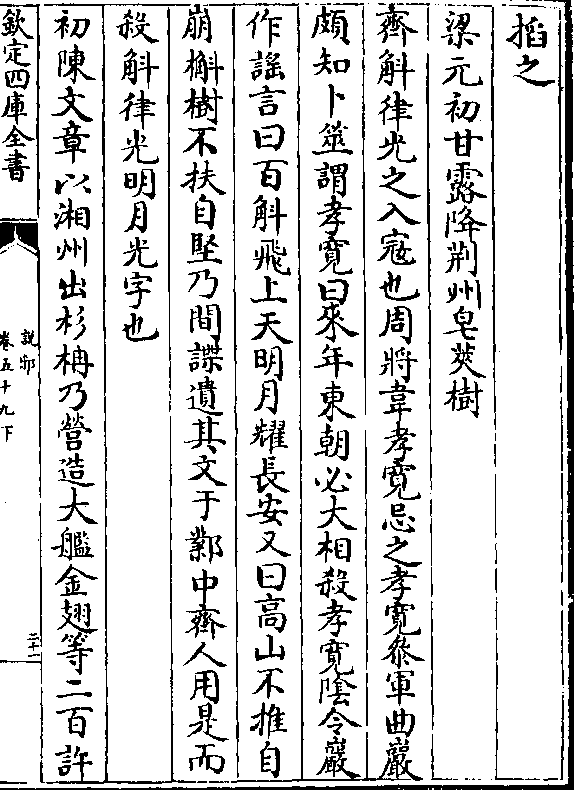 搯之
梁元初甘露降荆州皂莢樹
齊斛律光之入寇也周將韋孝寛忌之孝寛叅軍曲巖
頗知卜筮謂孝寛曰來年東朝必大相殺孝寛隂令巖
作謡言曰百斛飛上天明月耀長安又曰髙山不推自
崩槲樹不扶自竪乃間諜遺其文于鄴中齊人用是而
殺斛律光明月光字也
初陳文章以湘州出杉柟乃營造大艦金翅等二百許
欽定四庫全書
説郛
卷五十九下
二十一